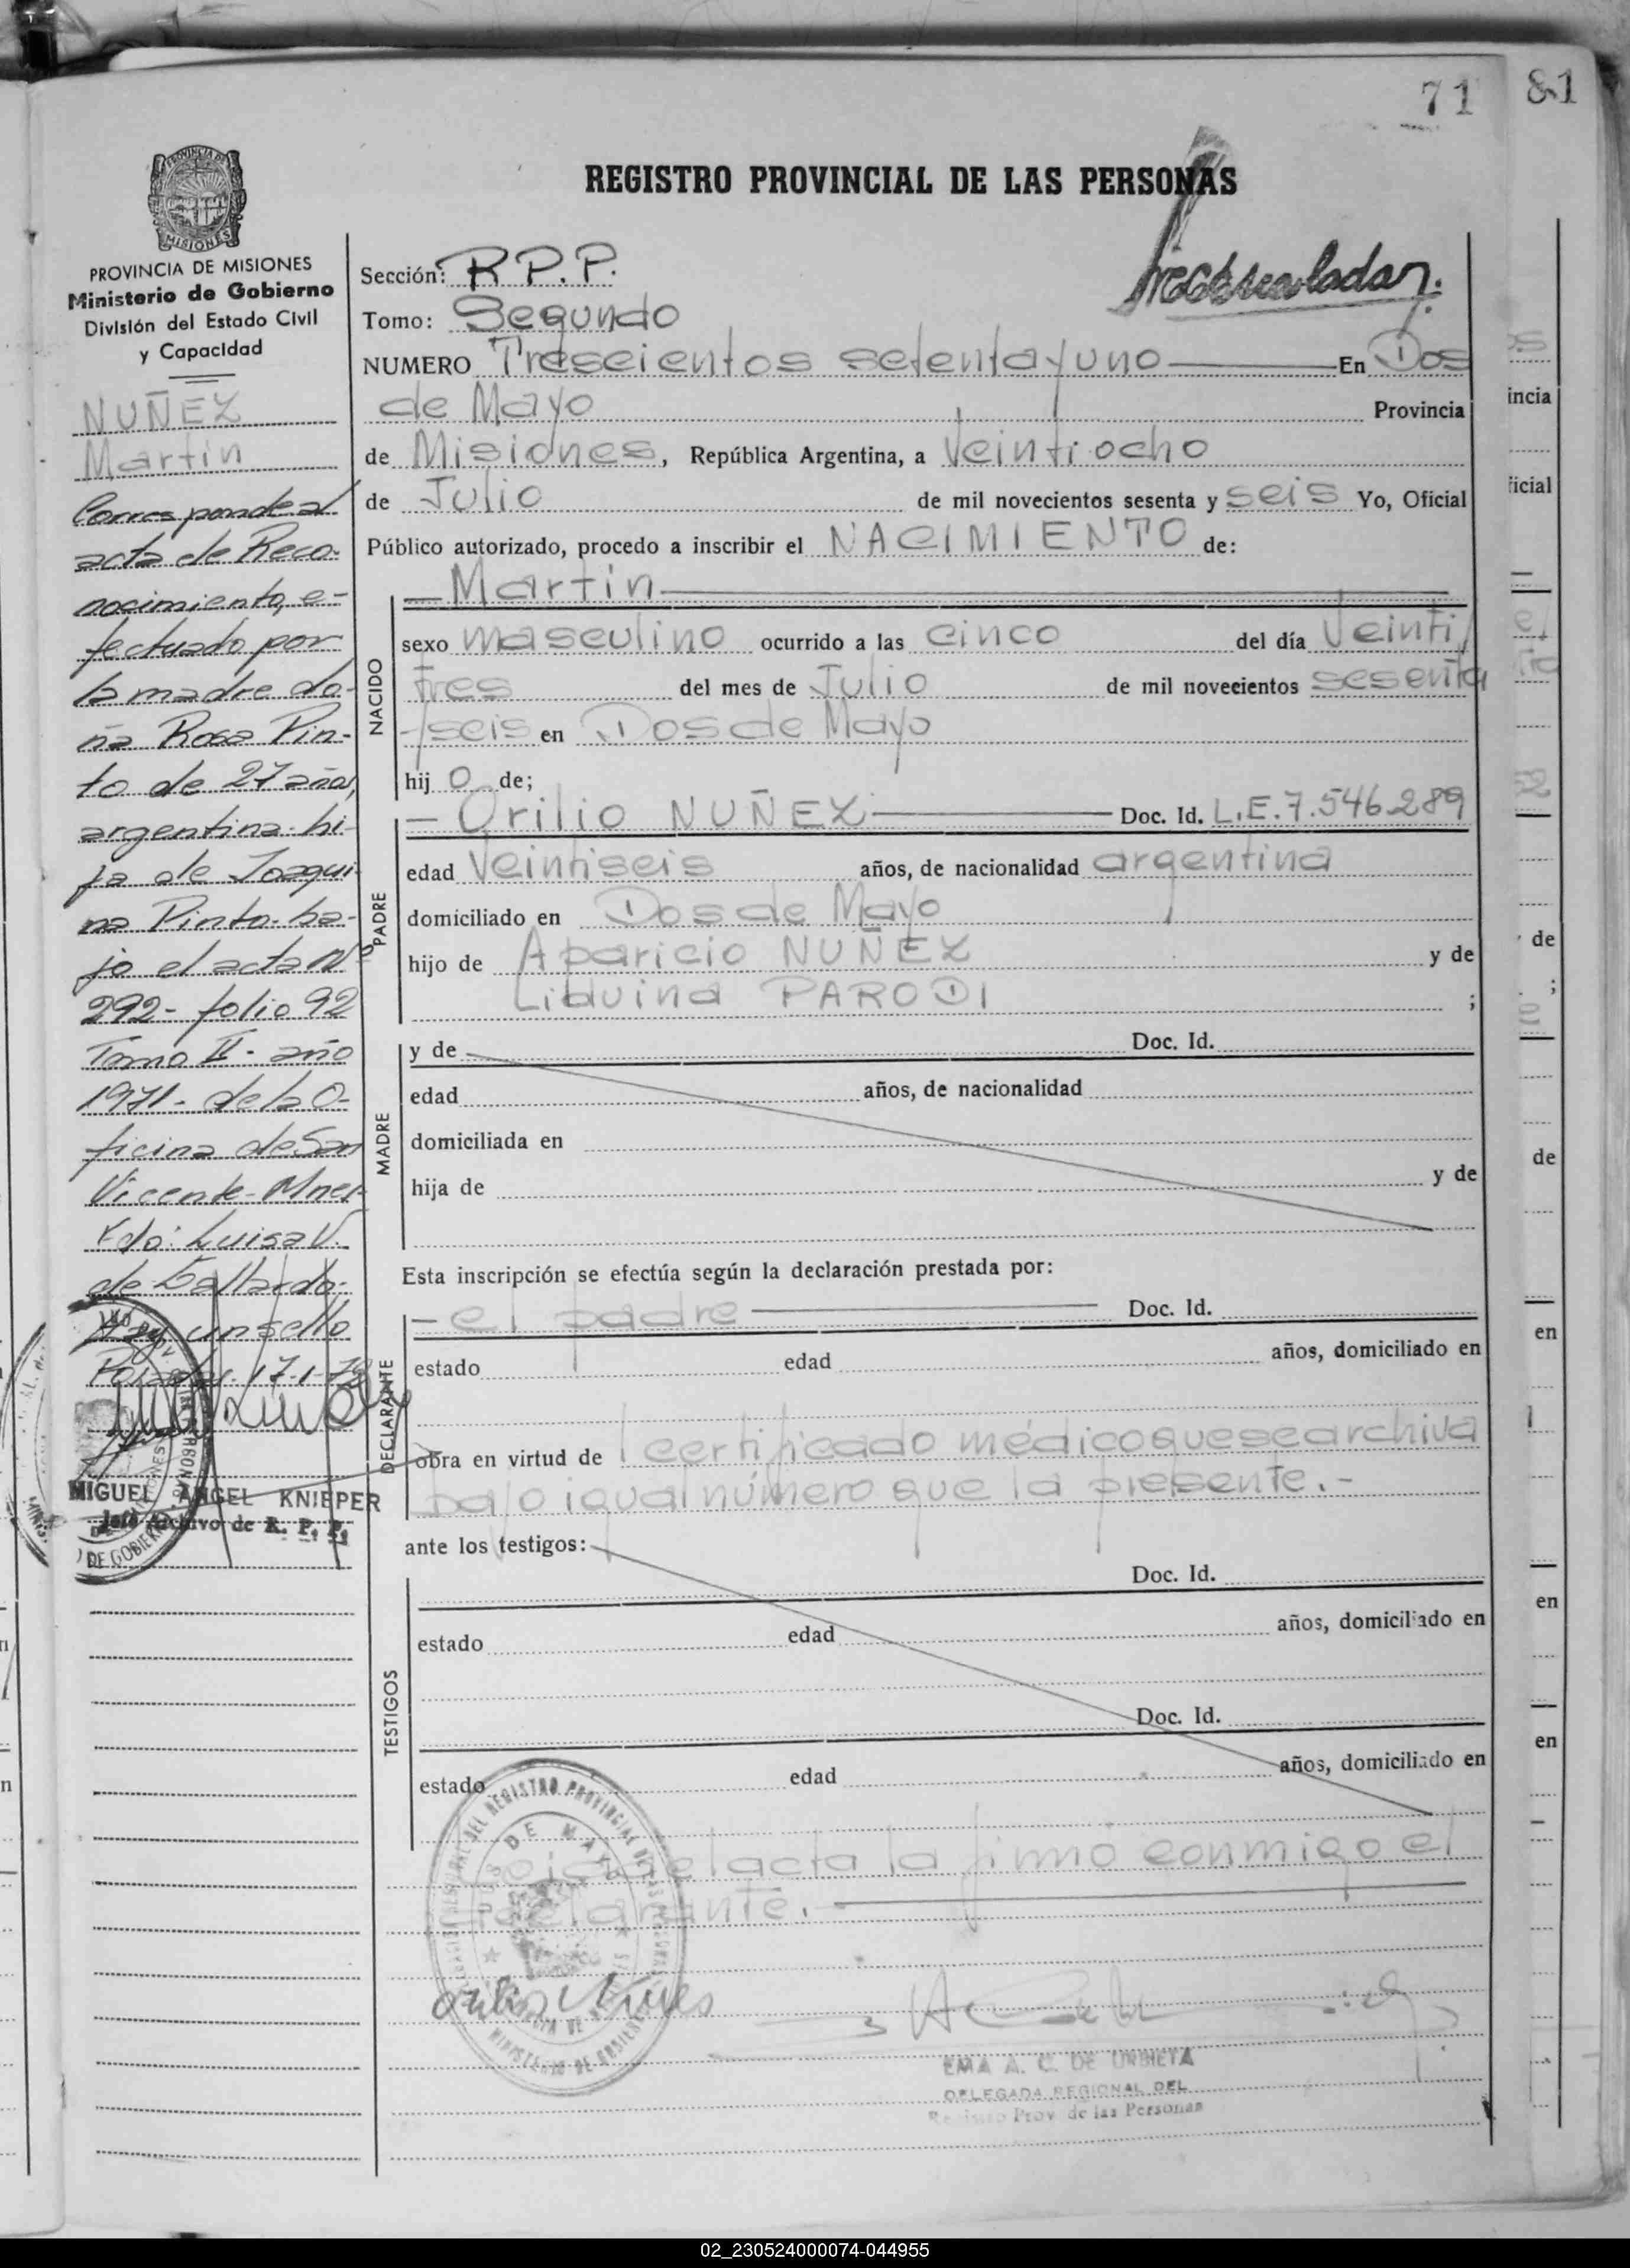 71
81
REGISTRO PROVINCIAL DE LAS PERSONAS
PROVINCIA DE MISIONES
Ministerio de Gobierno
División del Estado Civil
y Capacidad
NUÑEZ
Martin
Corresponde al
acta de Reco-
nocimiento, e-
fectuado por
la madre do-
ña Rosa Pin-
to de 27 años,
argentina-hi-
ja de Joaqui-
na Pinto-ba-
jo el acta Nº
292- folio 92
Tomo II- año
1971- de la O-
ficina de San
Vicente-Mnes-
Fdo: Luisa V.
de Gallardo-
Hay un sello
MIGUEL ANGEL KNIEPER
Jefe Archivo de R. P. P.
Sección: R.P.P.
Tomo: Segundo
NUMERO Trescientos setenta y uno En Dos
de Mayo Provincia
de Misiones, República Argentina, a Veintiocho
de Julio de mil novecientos sesenta y seis Yo, Oficial
Público autorizado, procedo a inscribir el NACIMIENTO de:
- Martin
NACIDO
sexo masculino ocurrido a las cinco del día Veinti
tres del mes de Julio de mil novecientos sesenta
y seis en Dos de Mayo
hij o de;
- Orilio NUÑEZ Doc. Id. L.E.7.546.289
PADRE
edad Veintiseis años, de nacionalidad argentina
domiciliado en Dos de Mayo
hijo de Aparicio NUÑEZ y de
Liduina PARODI ;
MADRE
y de Doc. Id.
edad años, de nacionalidad
domiciliada en
hija de y de
Esta inscripción se efectúa según la declaración prestada por:
DECLARANTE
- el padre Doc. Id.
estado edad años, domiciliado en
obra en virtud de 1 certificado médico que se archiva
bajo igual número que la presente.-
ante los testigos:
TESTIGOS
Doc. Id.
estado edad años, domiciliado en
Doc. Id.
estado edad años, domiciliado en
el acta la firmó conmigo el
declarante.
EMA A. C. DE URBIETA
DELEGADA REGIONAL DEL
Registro Prov. de las Personas
02_230524000074-044955